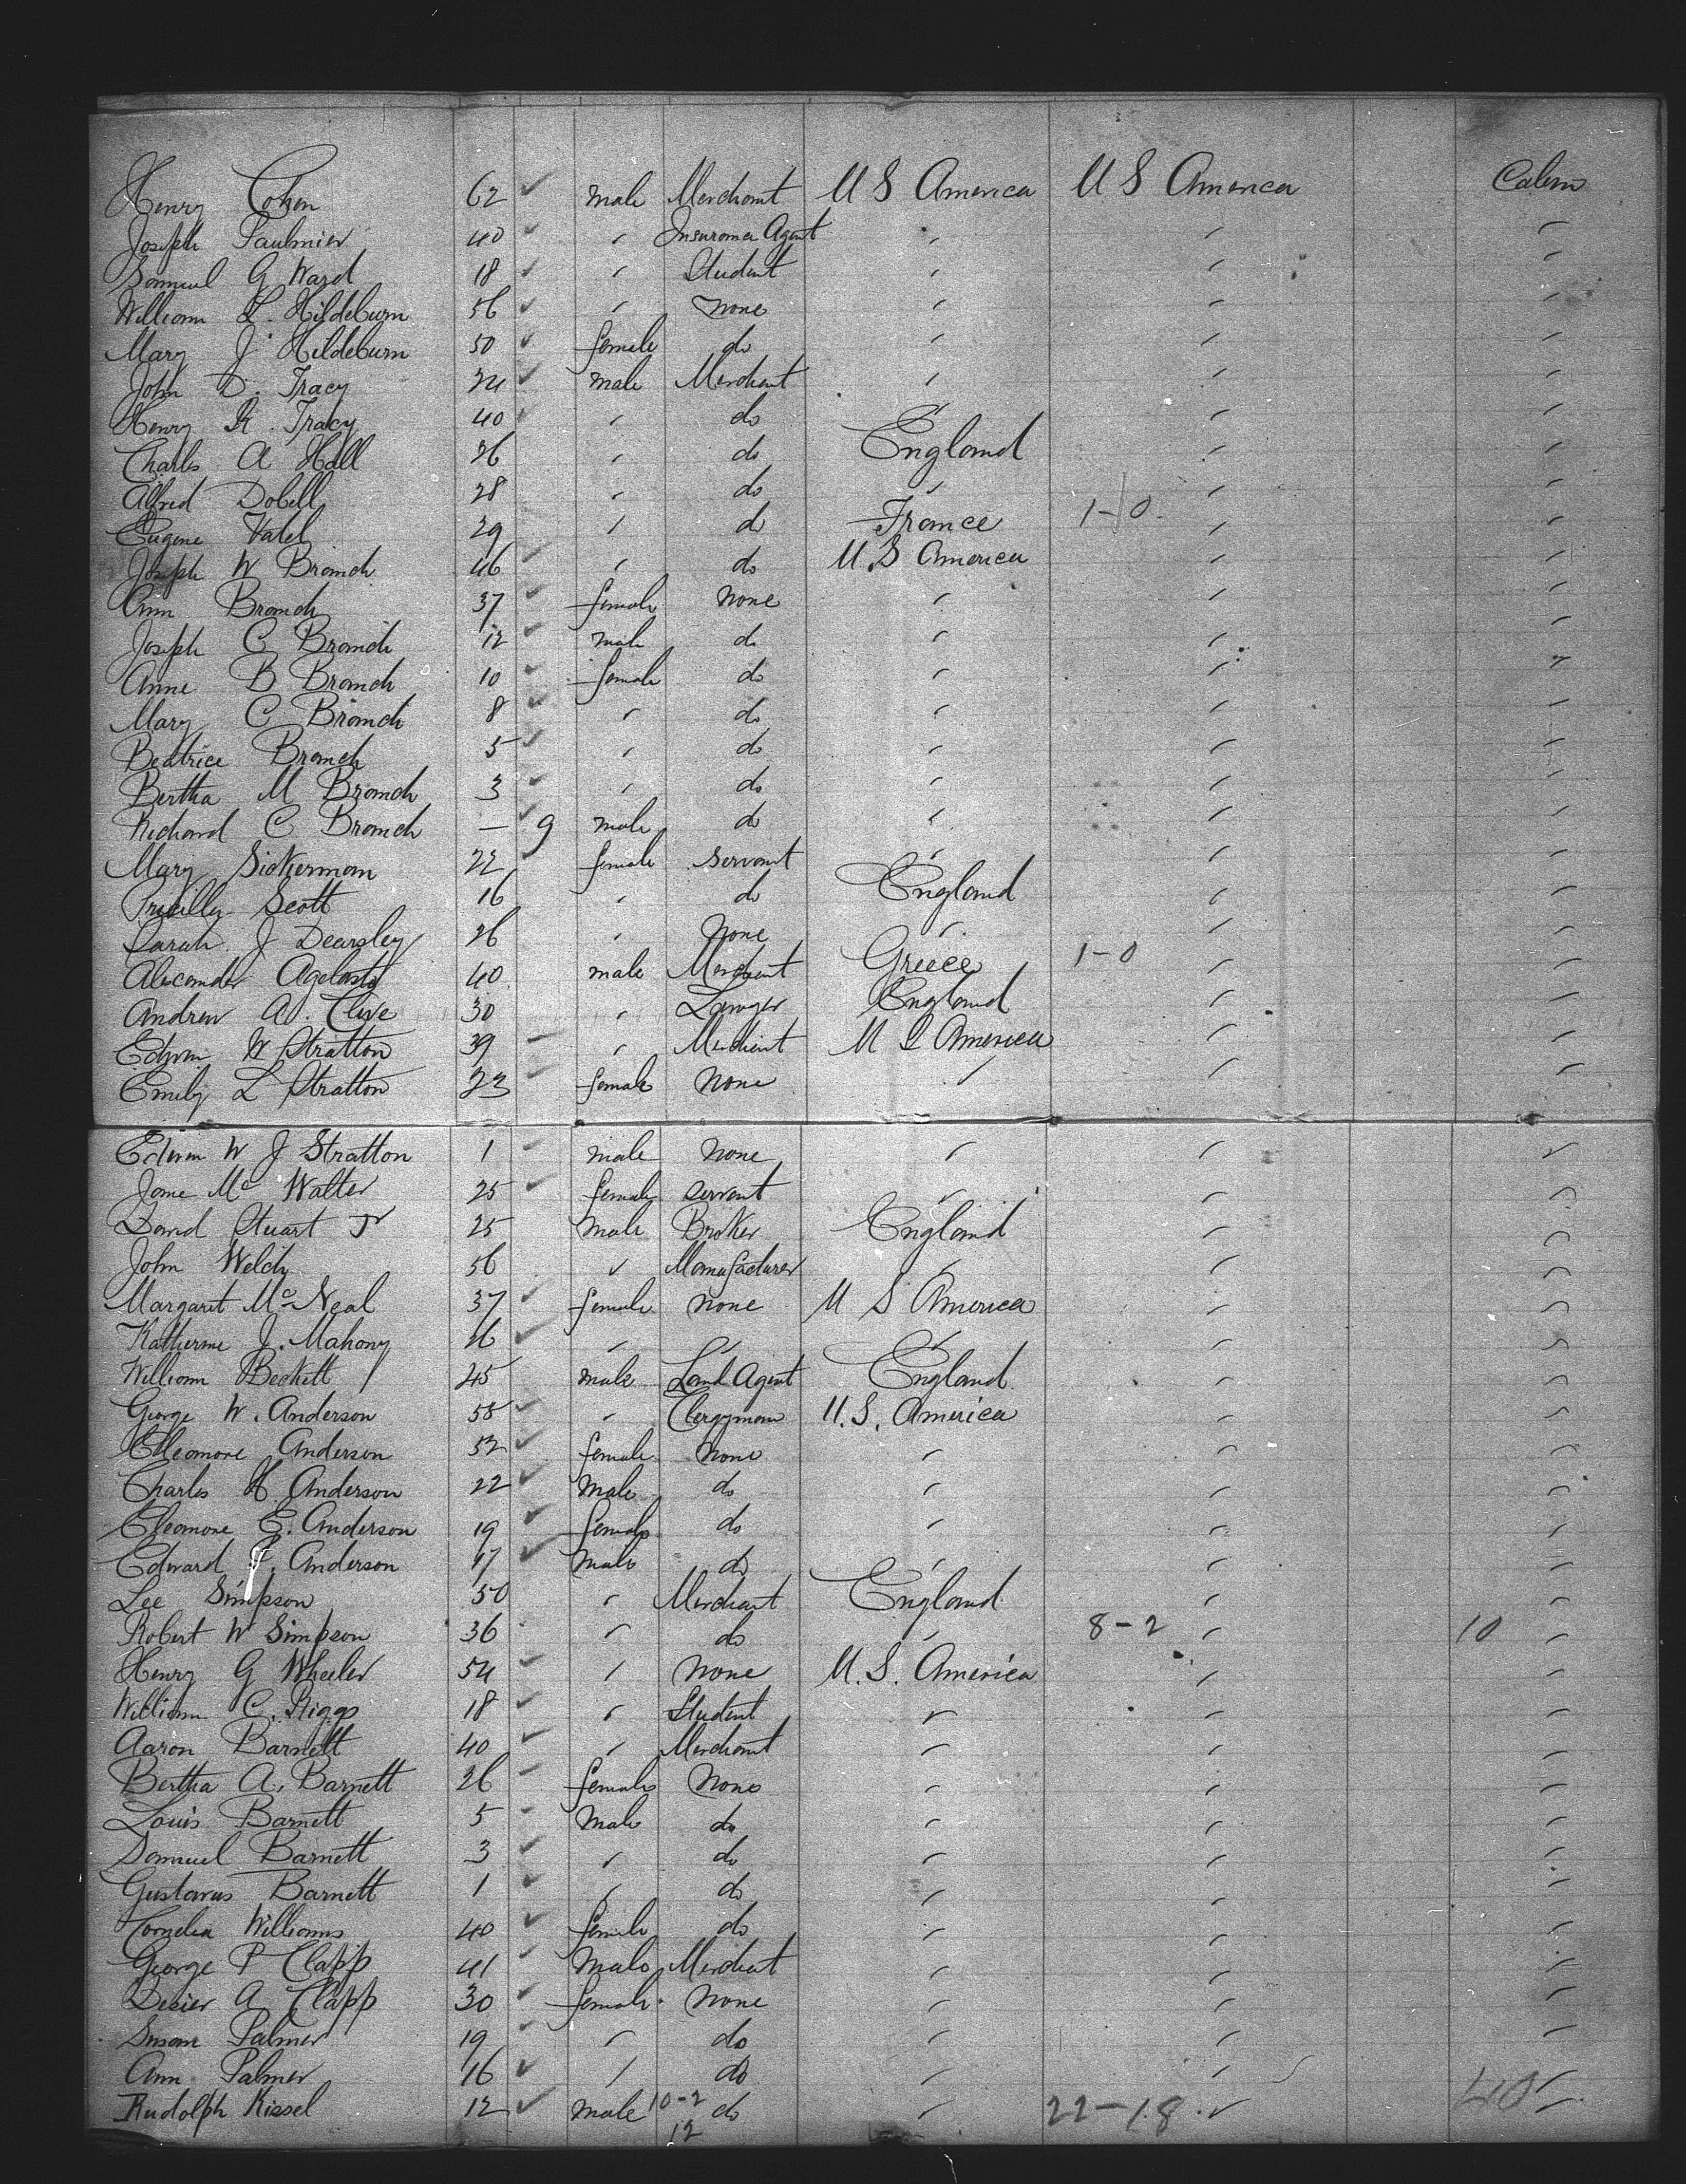 Henry Cohen 62 ✓ male Merchant U S America U S America Cabin
Joseph Paulmier 40 ✓ " Insurance Agent " " "
Samuel G Ward 18 ✓ " Student " " "
William L. Hildeburn 56 ✓ " None " " "
Mary J Hildeburn 50 ✓ female do " " "
John D. Tracy 24 ✓ male Merchant " " "
Henry K. Tracy 40 ✓ " do " " "
Charles A Hall 26 " do England " "
Alfred Dobell 28 " do " " "
Eugene Vatel 29 " do France 1-0 " "
Joseph W Branch 46 ✓ " do U.S America " "
Ann Branch 37 ✓ female None " " "
Joseph C Branch 12 ✓ male do " " "
Anne B Branch 10 ✓ female do " " "
Mary C Branch 8 ✓ " do " " "
Beatrice Branch 5 ✓ " do " " "
Bertha M Branch 3 ✓ " do " " "
Richard C Branch — ✓ 9 male do " " "
Mary Sickerman 22 female Servant " " "
Scott 16 " do England " "
Sarah J Dearsley 26 " None " " "
Alexander Agelasto 40 male Merchant Greece 1-0 " "
Andrew A. Clive 30 " Lawyer England " "
Edwin W Stratton 39 ✓ " Merchant U S America " "
Emily L Stratton 23 ✓ female None " " "
Edwin W J Stratton 1 ✓ male None " " "
Jane Mc Walter 25 ✓ female Servant " " "
David Stuart Jr 25 male Broker England " "
John Welch 56 " Manufacturer " " "
Margaret Mc Neal 37 ✓ female None U S America " "
Katherine J. Mahony 26 ✓ " " " " "
William Beckett 45 male Land Agent England " "
George W. Anderson 58 ✓ " Clergyman U.S. America " "
Eleanore Anderson 52 ✓ female None " " "
Charles H. Anderson 22 ✓ Male do " " "
Eleanore E. Anderson 19 ✓ female do " " "
Edward J. Anderson 17 ✓ Male do " " "
Lee Simpson 50 " Merchant England " "
Robert W Simpson 36 " do " 8-2 " 10 "
Henry G Wheeler 54 ✓ " None U.S. America " "
William C. Riggs 18 ✓ " Student " " "
Aaron Barnett 40 ✓ " Merchant " " "
Bertha A. Barnett 26 ✓ female None " " "
Louis Barnett 5 ✓ Male do " " "
Samuel Barnett 3 ✓ " do " " "
Gustavus Barnett 1 ✓ " do " " "
Cornelia Williams 40 ✓ female do " " "
George P Clapp 41 ✓ Male Merchant " " "
A Clapp 30 ✓ female None " " "
Susan Palmer 19 ✓ " do " " "
Ann Palmer 16 ✓ " do " " "
Rudolph Kissel 12 ✓ male 10-2 do " 22-18 " 40 "
12